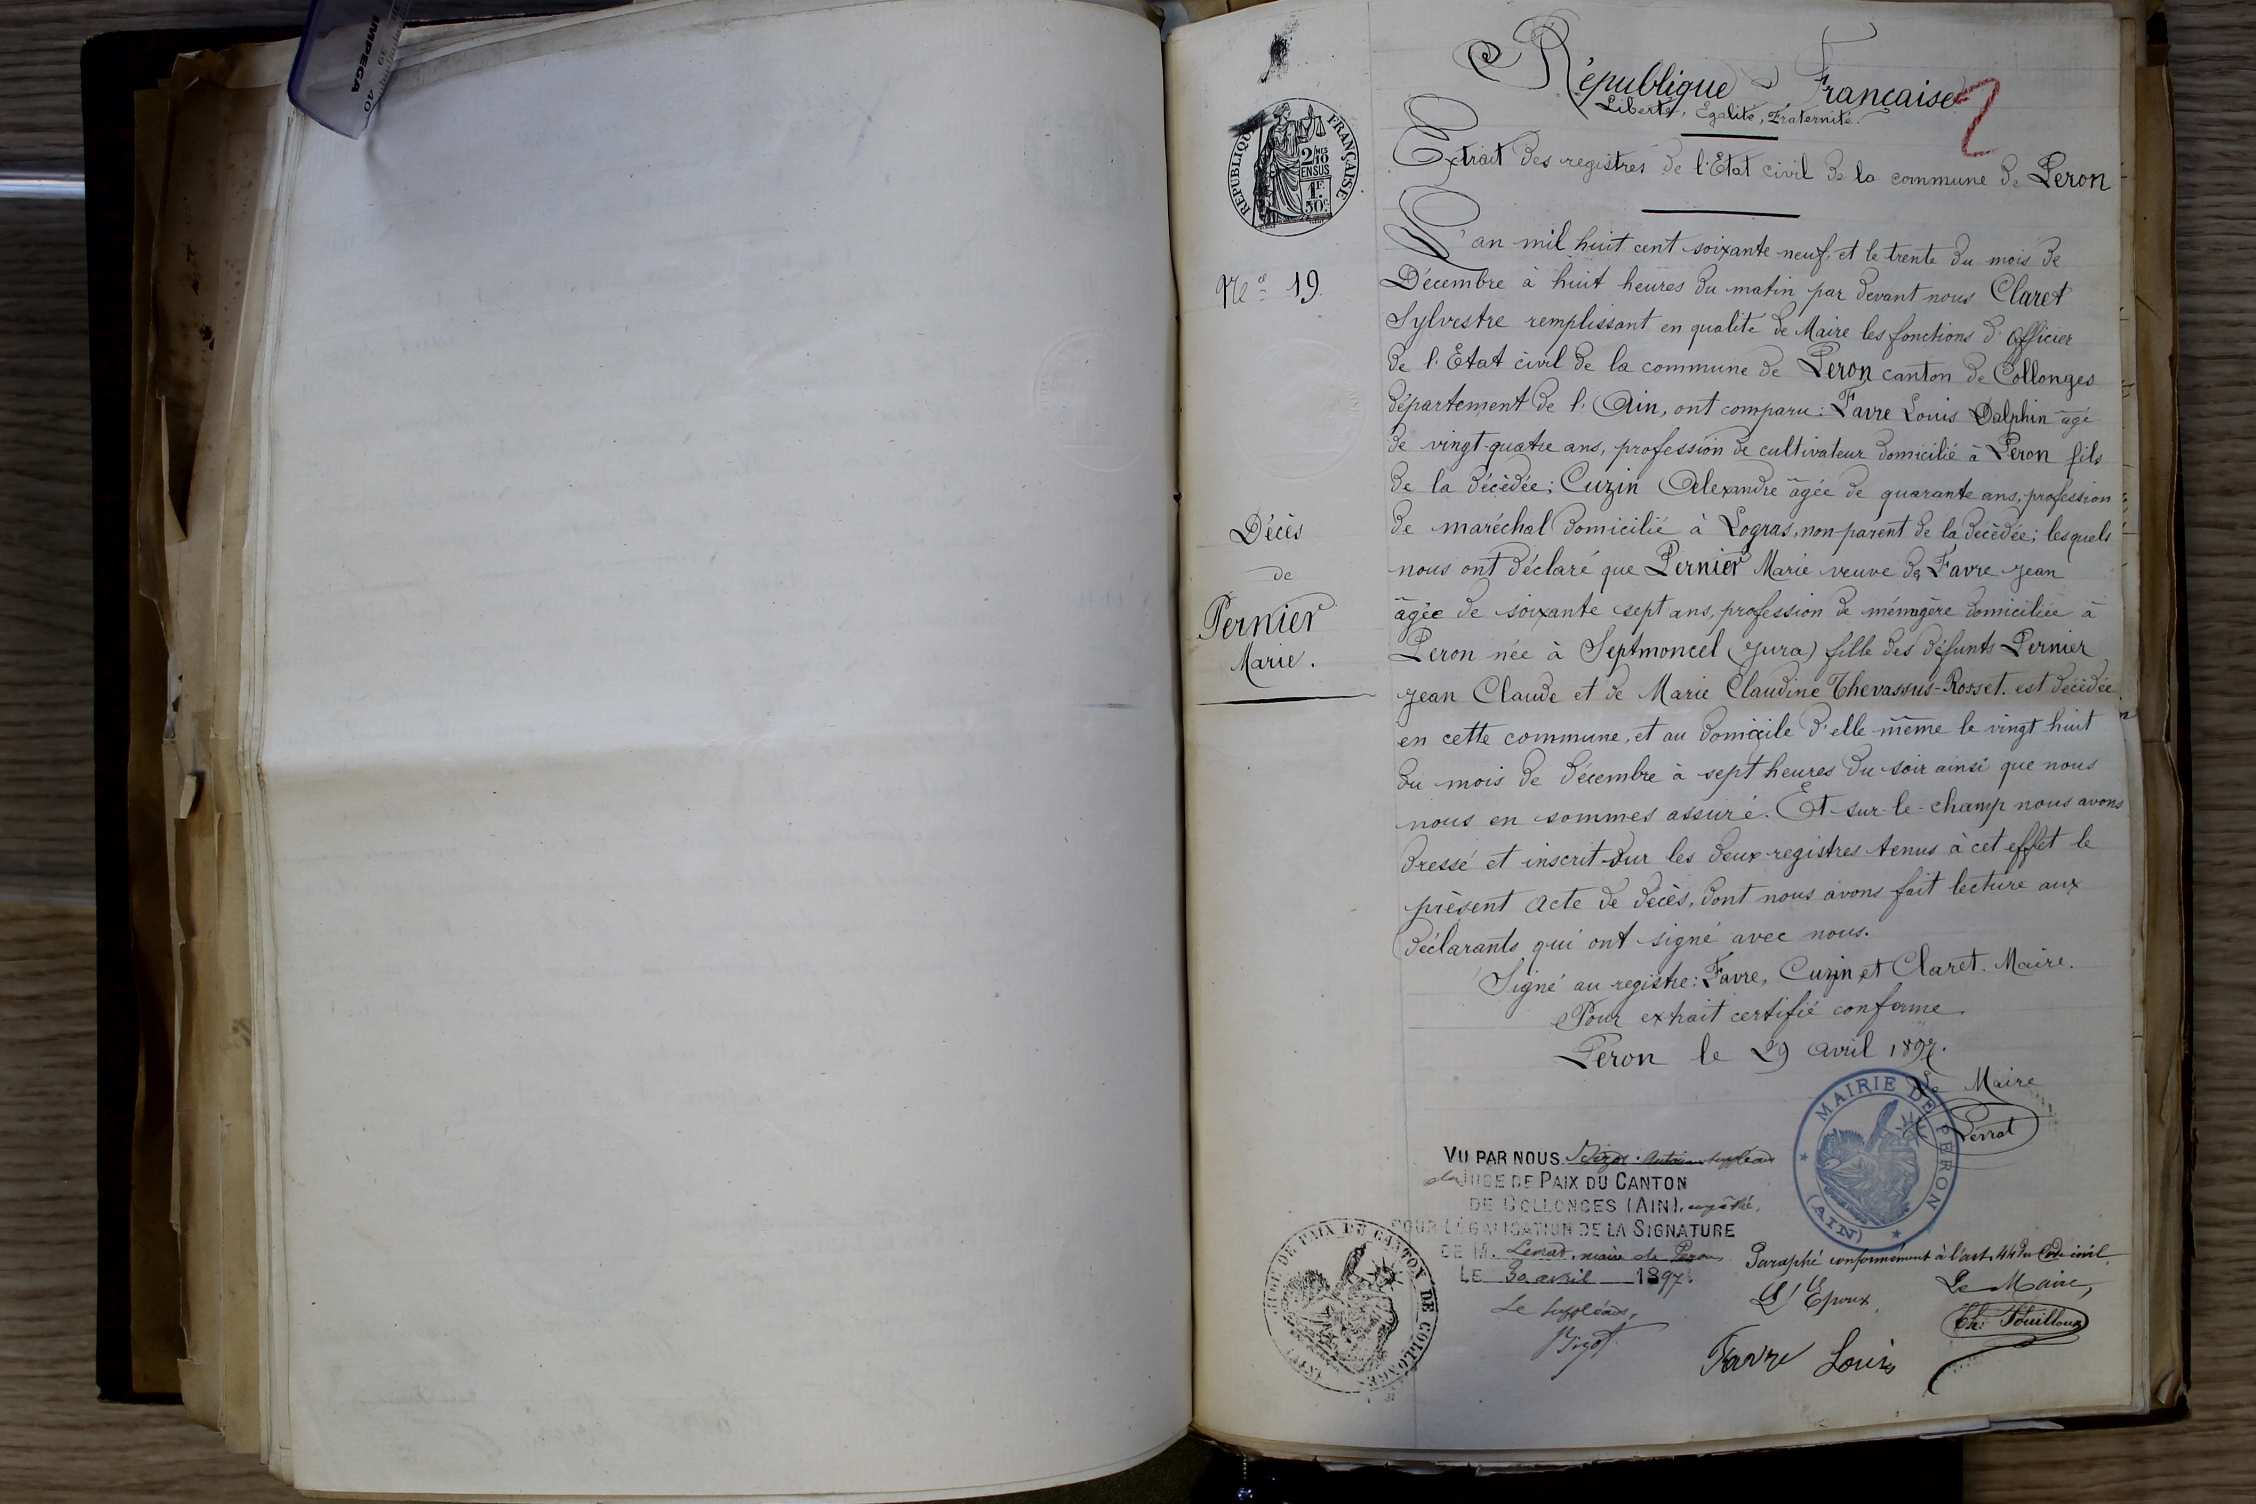 République Française
Liberté, Egalité, Fraternité.
Extrait des registres de l'Etat civil de la commune de Peron
REPUBLIQUE FRANÇAISE
2/10 MES
EN SUS
1F.
50c
L'an mil huit cent soixante neuf et le trente du mois de
No 19.
Décembre à huit heures du matin par devant nous Claret
Sylvestre remplissant en qualité de Maire les fonctions d'officier
de l'Etat civil de la commune de Peron canton de Collonges
département de l'Ain, ont comparu: Favre Louis Dalphin âgé
de vingt-quatre ans, profession de cultivateur domicilié à Peron fils
de la décédée; Cuzin Alexandre âgée de quarante ans, profession
de maréchal domicilié à Logras, non-parent de la décédée; lesquels
Décès
de
Pernier
Marie.
nous ont déclaré que Pernier Marie veuve de Favre Jean
âgée de soixante sept ans, profession de ménagère domiciliée à
Peron née à Septmoncel (Jura) fille des défunts Pernier
Jean Claude et de Marie Claudine Thevassus-Rosset. est décédée
en cette commune, et au domicile d'elle même le vingt huit
du mois de décembre à sept heures du soir ainsi que nous
nous en sommes assuré. Et sur-le-champ nous avons
dressé et inscrit sur les deux registres tenus à cet effet le
présent acte de décès, dont nous avons fait lecture aux
déclarants qui ont signé avec nous.
Signé au registre: Favre, Cuzin et Claret. Maire.
Pour extrait certifié conforme
Peron le 29 avril 1897.
Le Maire
Perrot
MAIRIE DE PERON
(AIN)
VU PAR NOUS suppléant
du JUGE DE PAIX DU CANTON
DE COLLONGES (AIN), empêché,
POUR LÉGALISATION DE LA SIGNATURE
DE M. maire de Peron
LE 30 avril 1897.
Le Suppléant,
JUGE DE PAIX DU CANTON DE COLLONGES (AIN)
Paraphé conformément à l'art. 44 du Code civil.
L'Epoux,
Le Maire,
Favre Louis
IMPEGA
40